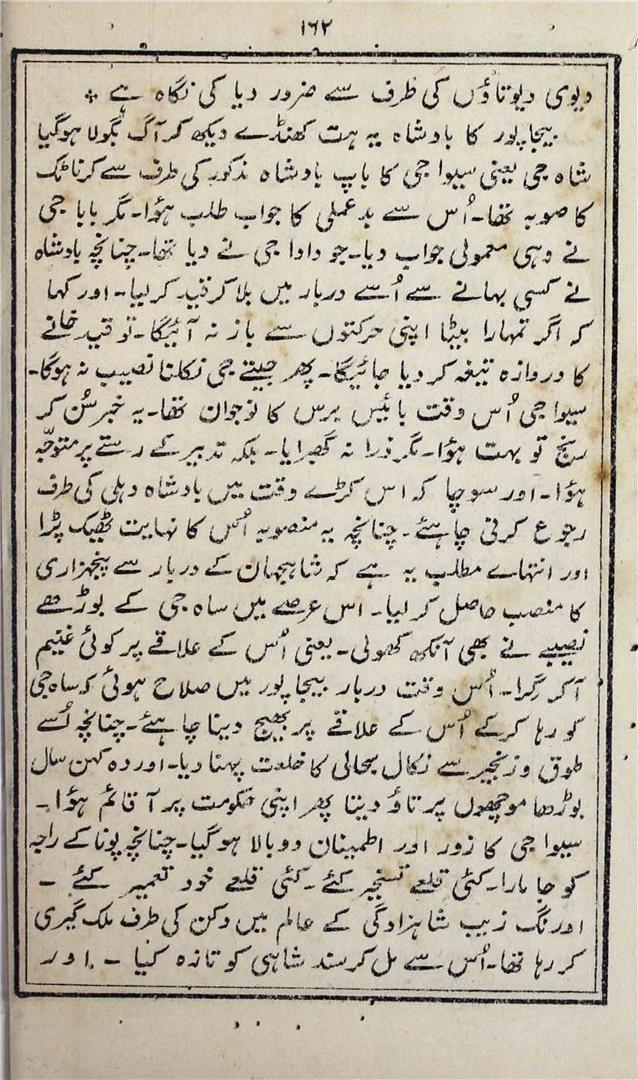 ۱۶۲
دیوی دیوتاؤں کی طرف سے ضرور دیا کی نگاہ ہے *
بیجاپور کا بادشاہ یہ ہت کھنڈے دیکھ کر آگ بگولا ہوگیا
شاہ جی یعنی سیوا جی کا باپ بادشاہ مذکور کی طرف سے کرناٹک
کا صوبہ تھا۔ اُس سے بدعملی کا جواب طلب ہؤا۔ مگر بابا جی
نے وہی معمولی جواب دیا۔ جو دادا جی نے دیا تھا۔ چنانچہ بادشاہ
نے کسی بہانے سے اُسے دربار میں بلا کر قید کر لیا۔ اور کہا
کہ اگر تمہارا بیٹا اپنی حرکتوں سے باز نہ آئیگا۔ تو قید خانے
کا دروازہ تیغہ کر دیا جائیگا۔ پھر جیتے جی نکلنا نصیب نہ ہوگا۔
سیوا جی اُس وقت بائیس برس کا نوجوان تھا۔ یہ خبر سُن کر
رنج تو بہت ہؤا۔ مگر ذرا نہ گھبرایا۔ بلکہ تدبیر کے رستے پر متوجّہ
ہؤا۔ اور سوچا کہ اس کڑے وقت میں بادشاہ دہلی کی طرف
رجوع کرنی چاہئے۔ چنانچہ یہ منصوبہ اُس کا نہایت ٹھیک پڑا
اور انتہاے مطلب یہ ہے کہ شاہجہان کے دربار سے پنجہزاری
کا منصب حاصل کر لیا۔ اس عرصے میں ساہ جی کے بوڑھے
نصیبے نے بھی آنکھ کھولی۔ یعنی اُس کے علاقے پر کوئی غنیم
آکر گرا۔ اُس وقت دربار بیجاپور میں صلاح ہوئی کہ ساہ جی
کو رہا کرکے اُس کے علاقے پر بھیج دینا چاہئے۔ چنانچہ اُسے
طوق و زنجیر سے نکال بحالی کا خلعت پہنا دیا۔ اور دہ کہن سال
بوڑھا موچھوں پر تاؤ دیتا پھر اپنی حکومت پر آ قائم ہؤا۔
سیوا جی کا زور اور اطمینان دوبالا ہوگیا۔ چنانچہ پونا کے راجہ
کو جا مارا۔ کئی قلعے تسخیر کئے۔ کئی قلعے خود تعمیر کئے۔
اورنگ زیب شاہزادگی کے عالم میں دکن کی طرف ملک گیری
کر رہا تھا۔ اُس سے مل کر سند شاہی کو تازہ کیا۔ اور